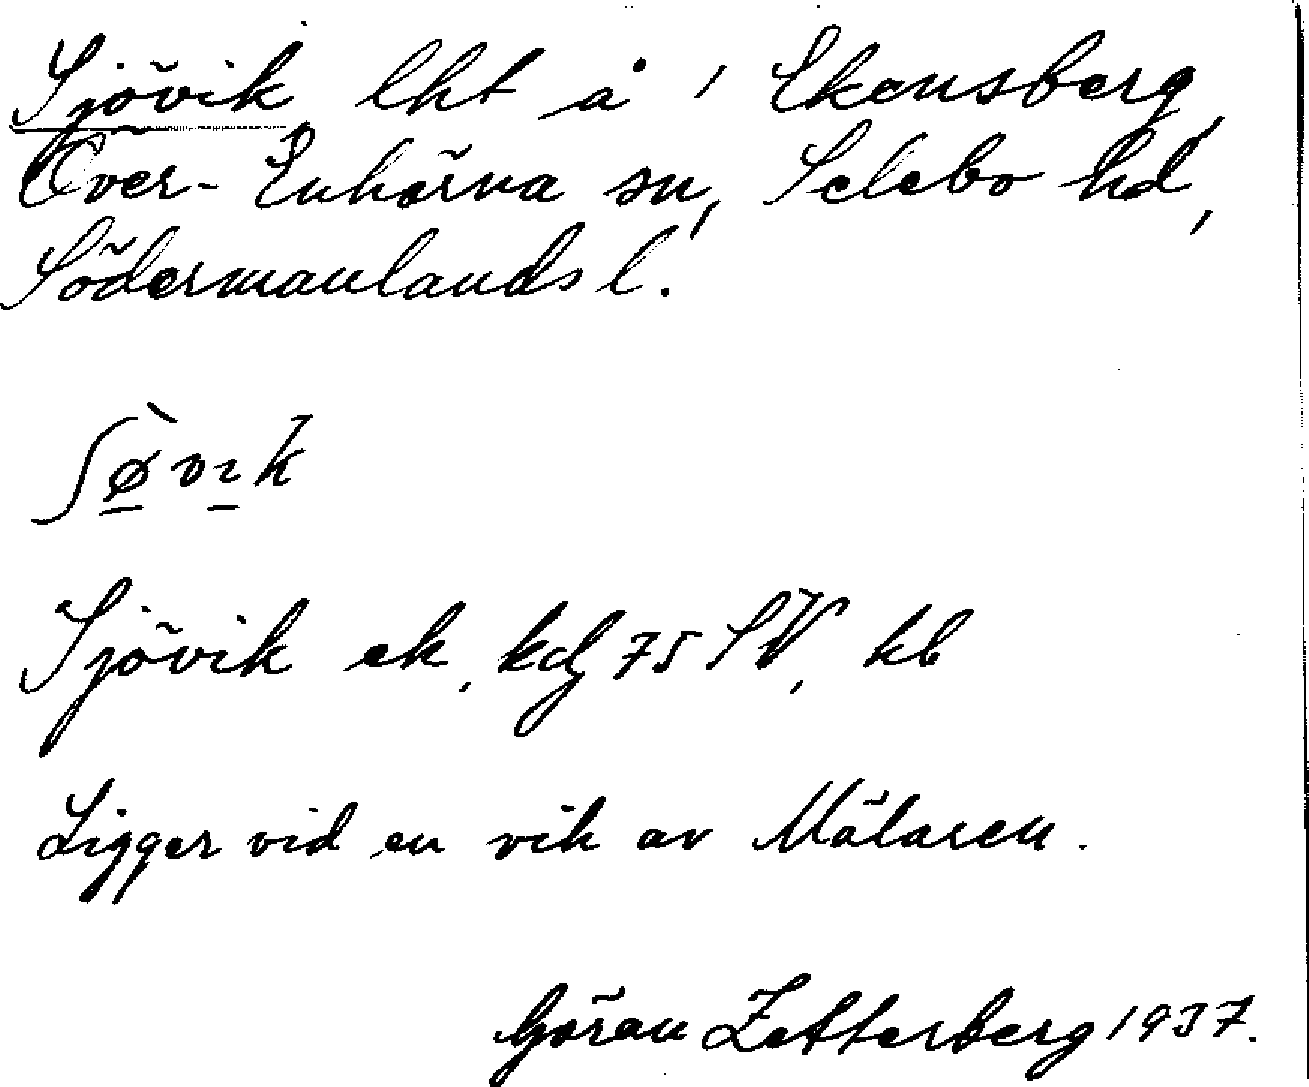 Sjövik lht å 1 Ekensberg,
Över-Enhörna sn, Selebo hd,
Södermanlands l.
ʃø̀vɪk
Sjövik ek, kbl 75 SV, hb
Ligger vid en vik av Mälaren.
Göran Zetterberg 1937.